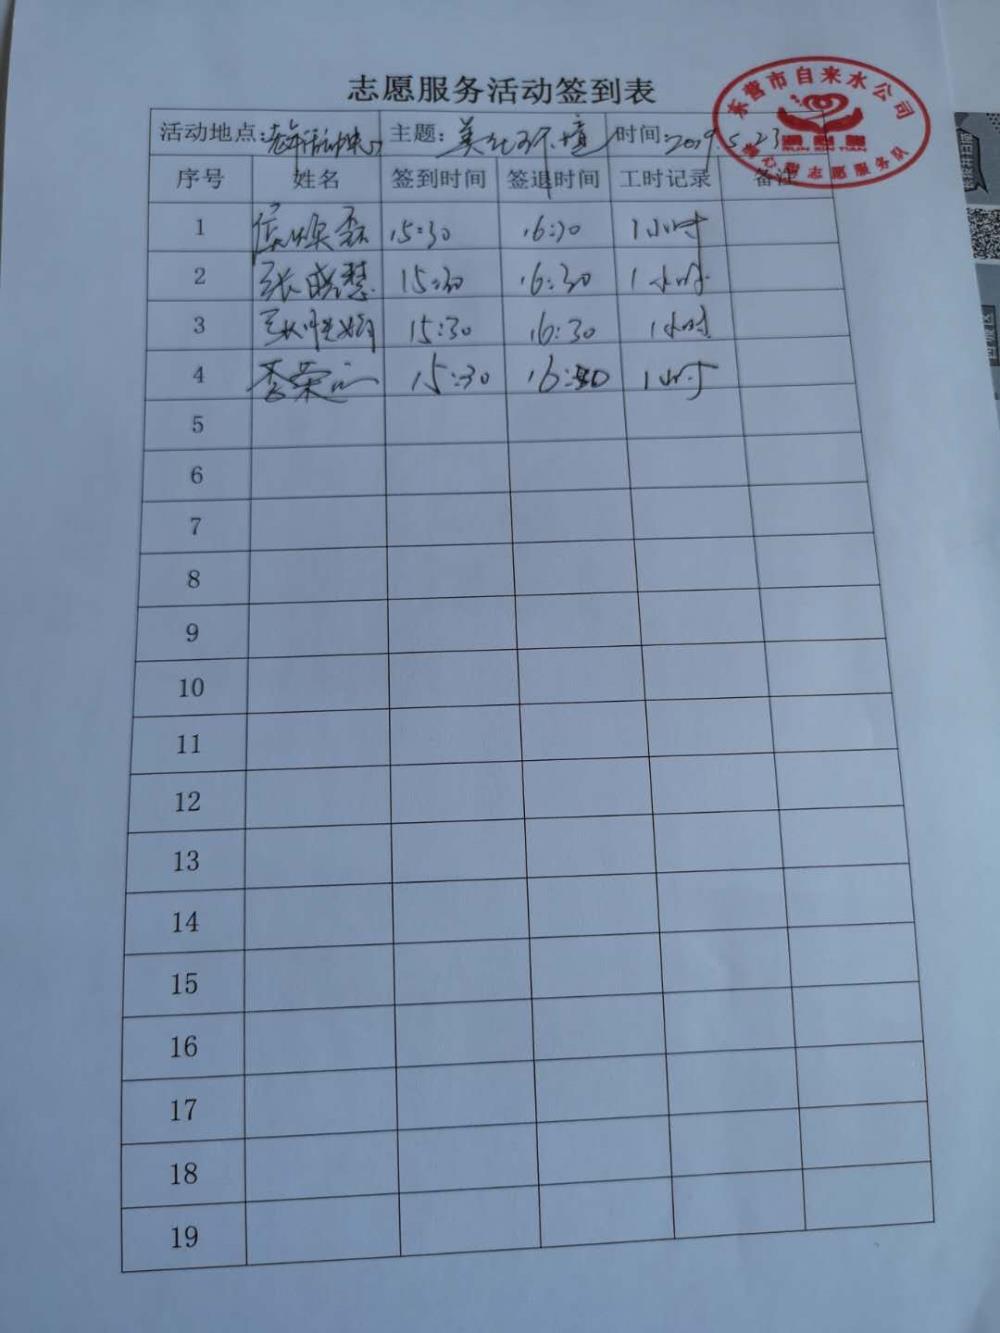 志愿服务活动签到表
东营市自来水公司
志愿服务队
活动地点: 老年活动中心 主题: 美化环境 时间: 2019.5.23
序号 姓名 签到时间 签退时间 工时记录 备注
1 15:30 16:30 1小时
2 张晓慧 15:30 16:30 1小时
3 15:30 16:30 1小时
4 李荣 15:30 16:30 1小时
5
6
7
8
9
10
11
12
13
14
15
16
17
18
19